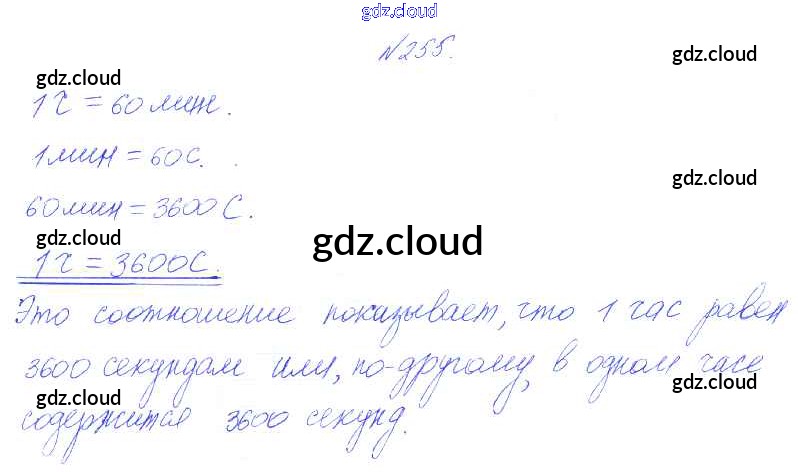 gdz.cloud
№255.
gdz.cloud
gdz.cloud
1 ч = 60 мин.
1 мин = 60 с.
gdz.cloud
60 мин = 3600 с.
gdz.cloud
gdz.cloud
1 ч = 3600 с.
Это соотношение показывает, что 1 час равен
3600 секундам или, по-другому, в одном часе
gdz.cloud
gdz.cloud
содержится 3600 секунд.